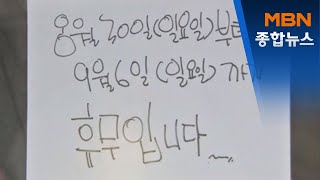 MBN
종합뉴스
용월 30일(일요일)부터
9월6일(일요일)까지
휴무입니다